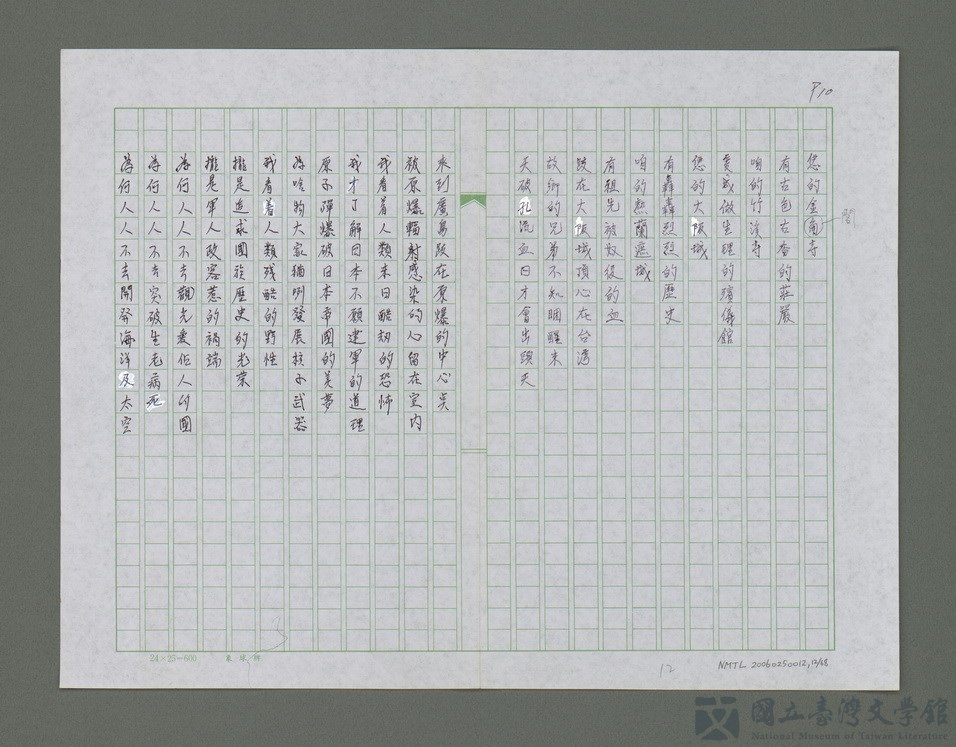 P10
您的金角寺
閣
有古色古香的莊嚴
咱的竹溪寺
變成做生理的殯儀館
您的大阪城
有轟轟烈烈的歷史
咱的熱蘭遮城
有祖先被奴役的血
跤在大阪城頂心在台灣
故鄉的兄弟不知睏醒未
天破孔流血日才會出頭天
來到廣島跤在原爆的中心點
被原爆輻射感染的人留在室內
我看着人類末日酷劫的恐怖
我才了解日本不願建軍的道理
原子彈爆破日本帝國的美夢
為啥物大家猶咧發展核子武器
我看着人類殘酷的野性
攏是追求國族歷史的光榮
攏是軍人政客惹的禍端
為何人人不去觀光愛佔人的國
為何人人不去突破生老病死
為何人人不去開發海洋及太空
24×25=600
12
NMTL 20060250012,12/68
國立臺灣文學館
National Museum of Taiwan Literature